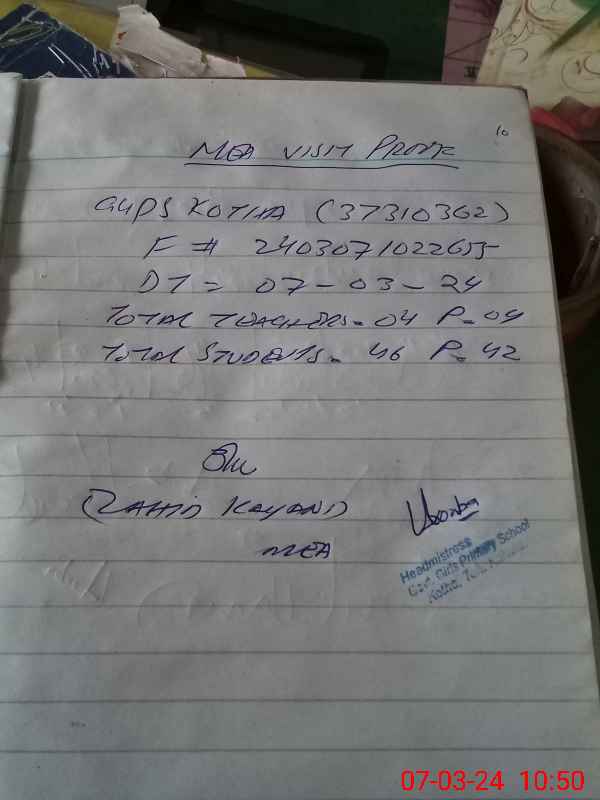 10
MEA VISIT PROOF
GGPS KOTHA (37310362)
F # 2403071022655
DT = 07-03-24
TOTAL TEACHERS = 04 P = 04
TOTAL STUDENTS = 46 P = 42
(ZAHID KAYANI)
MEA
Headmistress
Govt. Girls Primary School
Kotha,
07-03-24 10:50